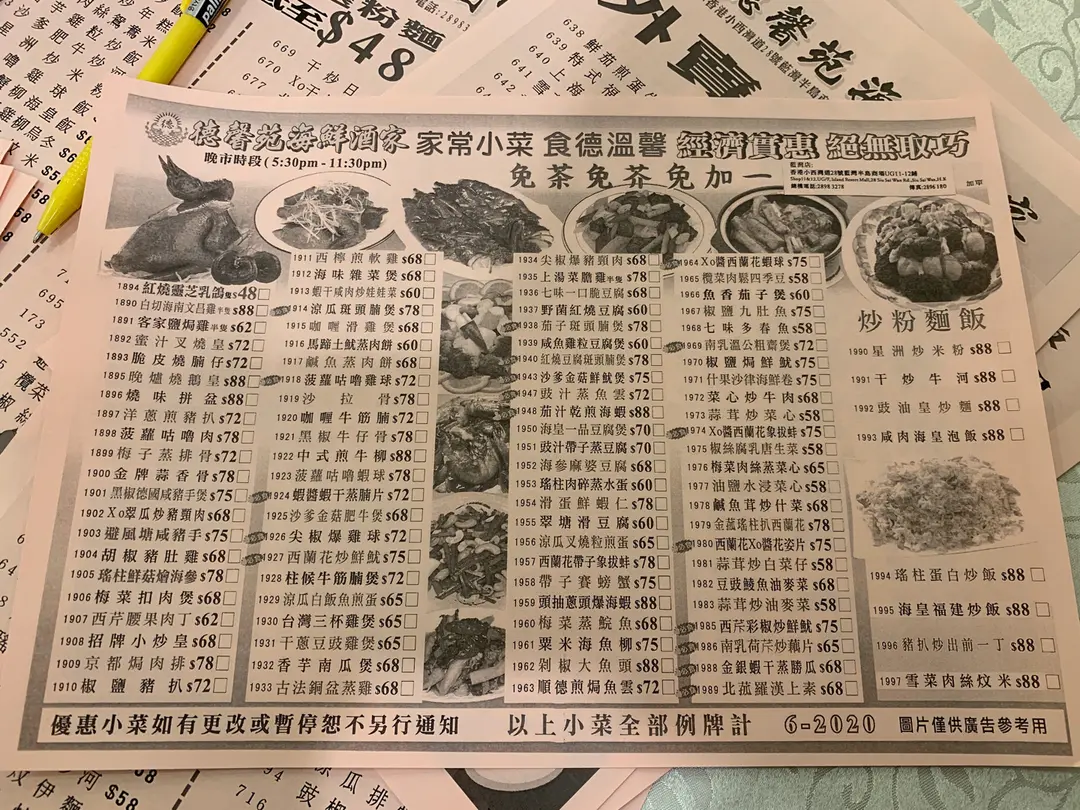 德馨苑海鮮酒家 家常小菜 食德溫馨 經濟實惠 絕無取巧
晚市時段(5:30pm - 11:30pm)
免茶免芥免加一
藍灣店:
香港小西灣道28號藍灣半島商場UG11-12舖
1894 紅燒靈芝乳鴿隻$48
1890 白切海南文昌雞半隻$88
1891 客家鹽焗雞半隻$62
1892 蜜汁叉燒皇$72
1893 脆皮燒腩仔$72
1895 晚爐燒鵝皇$88
1896 燒味拼盆$88
1897 洋蔥煎豬扒$72
1898 菠蘿咕嚕肉$78
1899 梅子蒸排骨$72
1900 金牌蒜香骨$78
1901 黑椒德國咸豬手煲$75
1902 Xo翠瓜炒豬頸肉$68
1903 避風塘咸豬手$75
1904 胡椒豬肚雞$68
1905 瑤柱鮮菇燴海參$78
1906 梅菜扣肉煲$68
1907 西芹腰果肉丁$62
1908 招牌小炒皇$68
1909 京都焗肉排$78
1910 椒鹽豬扒$72
1911 西檸煎軟雞$68
1912 海味雜菜煲$68
1913 蝦干咸肉炒娃娃菜$60
1914 涼瓜斑頭腩煲$78
1915 咖喱滑雞煲$68
1916 馬蹄土魷蒸肉餅$60
1917 鹹魚蒸肉餅$68
1918 菠蘿咕嚕雞球$72
1919 沙拉骨$78
1920 咖喱牛筋腩$72
1921 黑椒牛仔骨$78
1922 中式煎牛柳$88
1923 菠蘿咕嚕蝦球$78
1924 蝦醬蝦干蒸腩片$72
1925 沙爹金菇肥牛煲$68
1926 尖椒爆雞球$72
1927 西蘭花炒鮮魷$75
1928 柱候牛筋腩煲$72
1929 涼瓜白飯魚煎蛋$65
1930 台灣三杯雞煲$65
1931 干蔥豆豉雞煲$65
1932 香芋南瓜煲$68
1933 古法銅盆蒸雞$68
1934 尖椒爆豬頸肉$68
1935 上湯菜膽雞半隻$78
1936 七味一口脆豆腐$68
1937 野菌紅燒豆腐$60
1938 茄子斑頭腩煲$78
1939 咸魚雞粒豆腐煲$60
1940 紅燒豆腐斑頭腩煲$78
1943 沙爹金菇鮮魷煲$75
1947 豉汁蒸魚雲$72
1948 茄汁乾煎海蝦$88
1950 海皇一品豆腐煲$70
1951 豉汁帶子蒸豆腐$70
1952 海參麻婆豆腐$68
1953 瑤柱肉碎蒸水蛋$60
1954 滑蛋鮮蝦仁$78
1955 翠塘滑豆腐$60
1956 涼瓜叉燒粒煎蛋$65
1957 西蘭花帶子象拔蚌$78
1958 帶子賽螃蟹$75
1959 頭抽蔥頭爆海蝦$88
1960 梅菜蒸鯇魚$68
1961 粟米海魚柳$75
1962 剁椒大魚頭$88
1963 順德煎焗魚雲$72
1964 Xo醬西蘭花蝦球$75
1965 欖菜肉鬆四季豆$58
1966 魚香茄子煲$60
1967 椒鹽九肚魚$75
1968 七味多春魚$58
1969 南乳溫公粗齋煲$72
1970 椒鹽焗鮮魷$75
1971 什果沙律海鮮卷$75
1972 菜心炒牛肉$68
1973 蒜茸炒菜心$58
1974 Xo醬西蘭花象拔蚌$75
1975 椒絲腐乳唐生菜$58
1976 梅菜肉絲蒸菜心$65
1977 油鹽水浸菜心$58
1978 鹹魚茸炒什菜$68
1979 金菰瑤柱扒西蘭花$78
1980 西蘭花Xo醬花姿片$75
1981 蒜茸炒白菜仔$58
1982 豆豉鯪魚油麥菜$68
1983 蒜茸炒油麥菜$58
1985 西芹彩椒炒鮮魷$75
1986 南乳荷芹炒藕片$65
1988 金銀蝦干蒸勝瓜$68
1989 北菰羅漢上素$68
炒粉麵飯
1990 星洲炒米粉$88
1991 干炒牛河$88
1992 豉油皇炒麵$88
1993 咸肉海皇泡飯$88
1994 瑤柱蛋白炒飯$88
1995 海皇福建炒飯$88
1996 豬扒炒出前一丁$88
1997 雪菜肉絲炆米$88
優惠小菜如有更改或暫停恕不另行通知 以上小菜全部例牌計 6-2020 圖片僅供廣告參考用